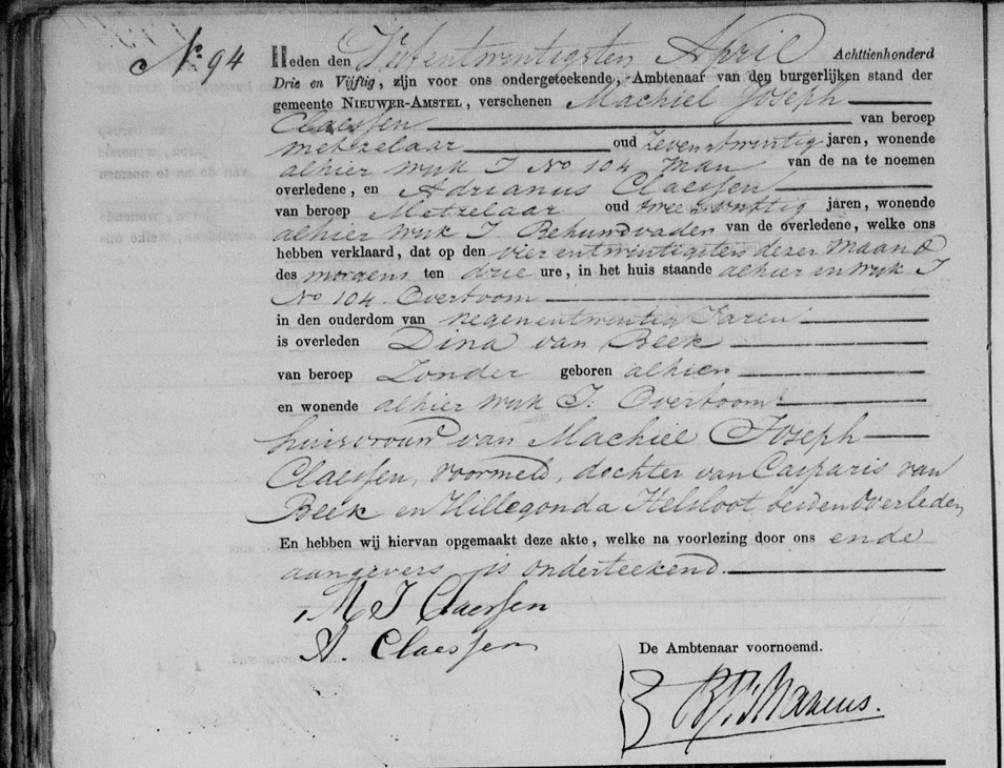 No. 94 Heden den Vijfentwintigsten April Achttienhonderd
Drie en Vijftig, zijn voor ons ondergeteekende, Ambtenaar van den burgerlijken stand der
gemeente NIEUWER-AMSTEL, verschenen Machiel Joseph
Claessen van beroep
metzelaar oud zevenentwintig jaren, wonende
alhier wyk I No 104 man van de na te noemen
overledene, en Adrianus Claessen
van beroep Metzelaar oud jaren, wonende
alhier wyk I. Behuwdvader van de overledene, welke ons
hebben verklaard, dat op den vierentwintigsten dezer maand
des morgens ten drie ure, in het huis staande alhier in wyk I
No 104 Overtoom
in den ouderdom van negenentwintig Jaren
is overleden Dina van Beek
van beroep Zonder geboren alhier
en wonende alhier wyk I. Overtoom
huisvrouw van Machiel Joseph
Claessen, voormeld, dochter van Casparis van
Beek en Hillegonda Helsloot beiden overleden
En hebben wij hiervan opgemaakt deze akte, welke na voorlezing door ons ende
aangevers is onderteekend.
M J Claessen
A. Claessen
De Ambtenaar voornoemd.